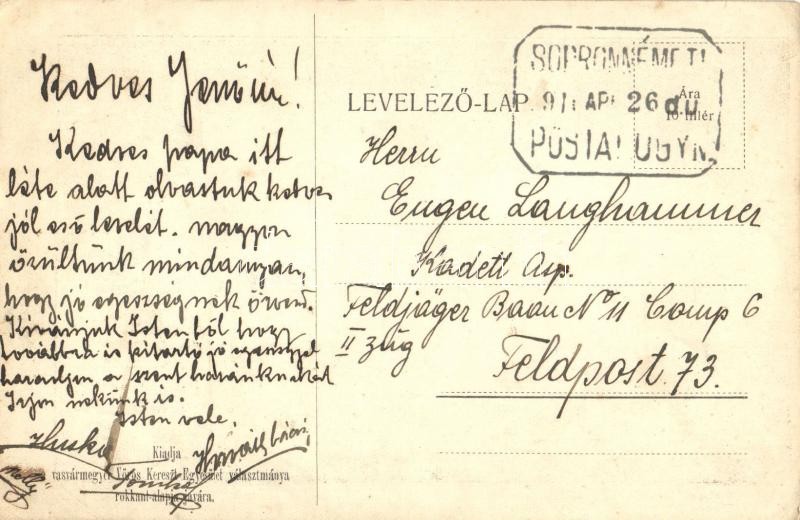 Kedves Jenőúr!
Kedves papa itt
léte alatt olvastuk kedves
jól eső levelét. nagyon
örültünk mindannyian,
hogy jó egészségnek örvend.
Kívánjuk Istentől hogy
továbbra is kitartó jó egészséggel
harcoljon a szent hazánkért
Írjon nekünk is.
Isten vele.
Kiadja
vasvármegyei Vörös Kereszt-Egyesület választmánya
rokkant-alapja javára.
SOPRONNÉMETI
91 AP 26 du
POSTAI ÜGYN.
LEVELEZŐ-LAP
Ára
10 fillér
Herrn
Eugen Langhammer
Kadett Asp.
Feldjäger Baon No 11 Comp 6
II Zug
Feldpost 73.